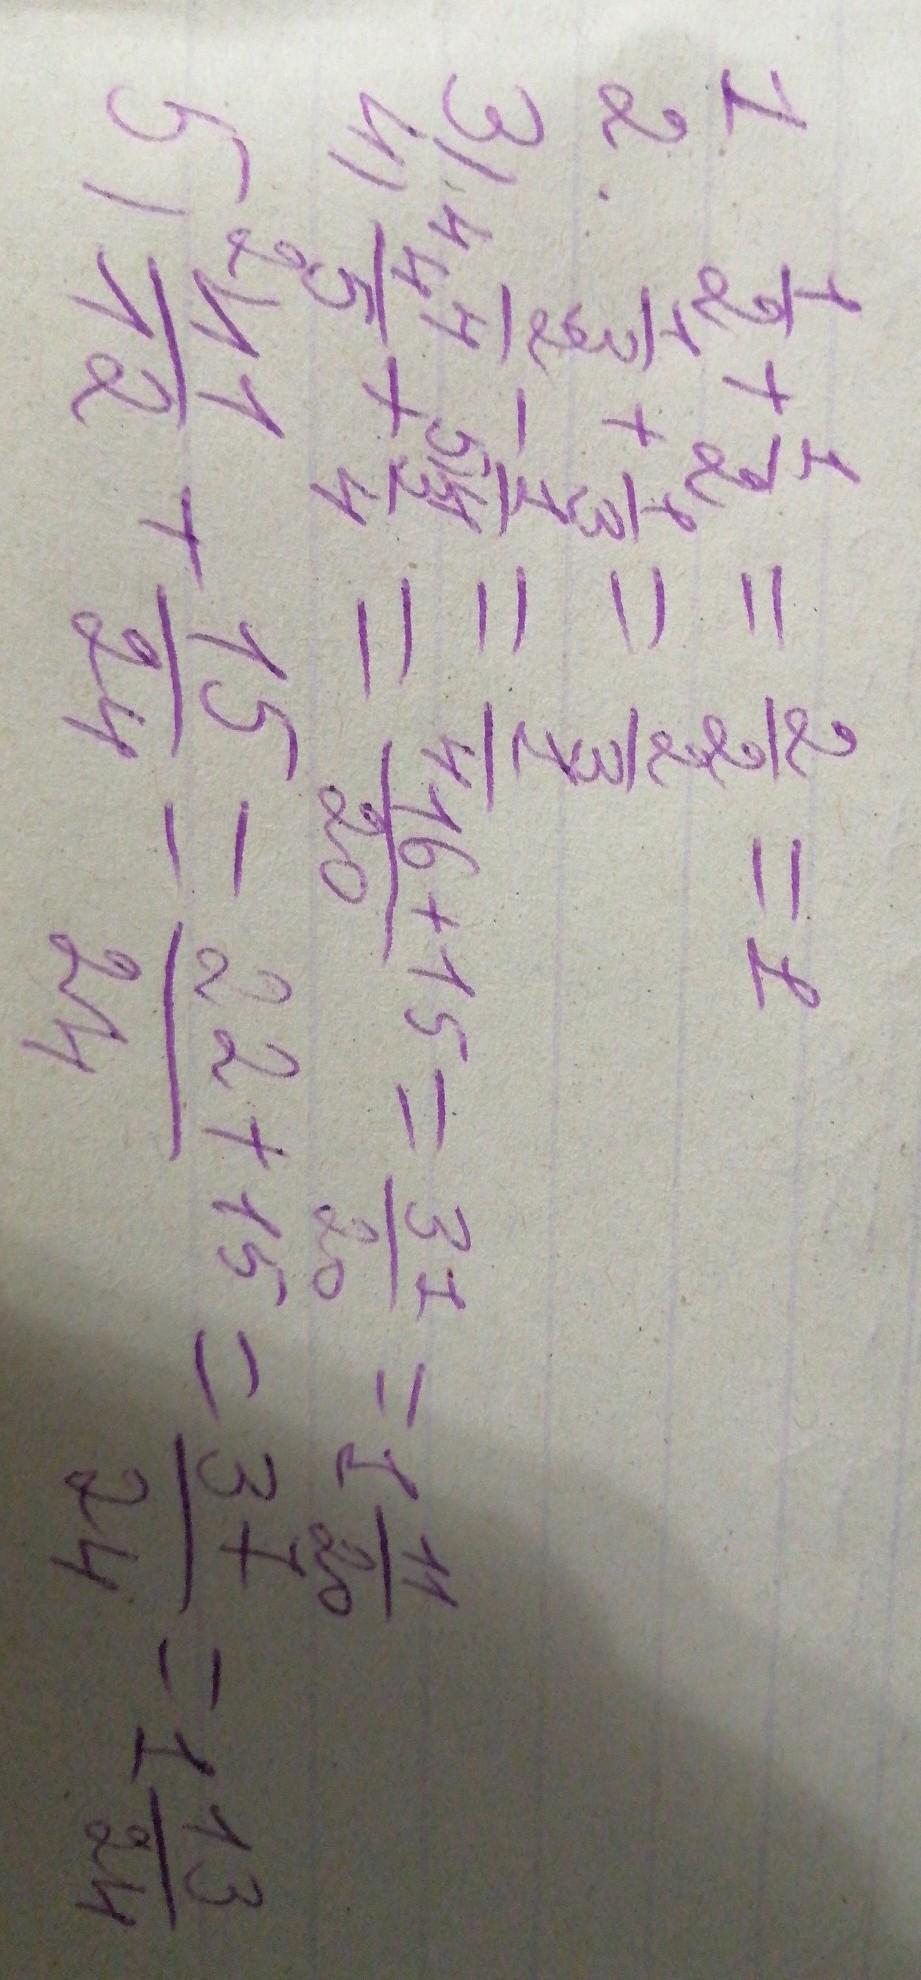 1. 1/2 + 1/2 = 2/2 = 1
2. 1/3 + 1/3 = 2/3
3) 2/4 - 1/4 = 1/4
4) ⁴4/5 + ⁵3/4 = 16+15/20 = 31/20 = 1 11/20
5) ²11/12 + 15/24 = 22+15/24 = 37/24 = 1 13/24